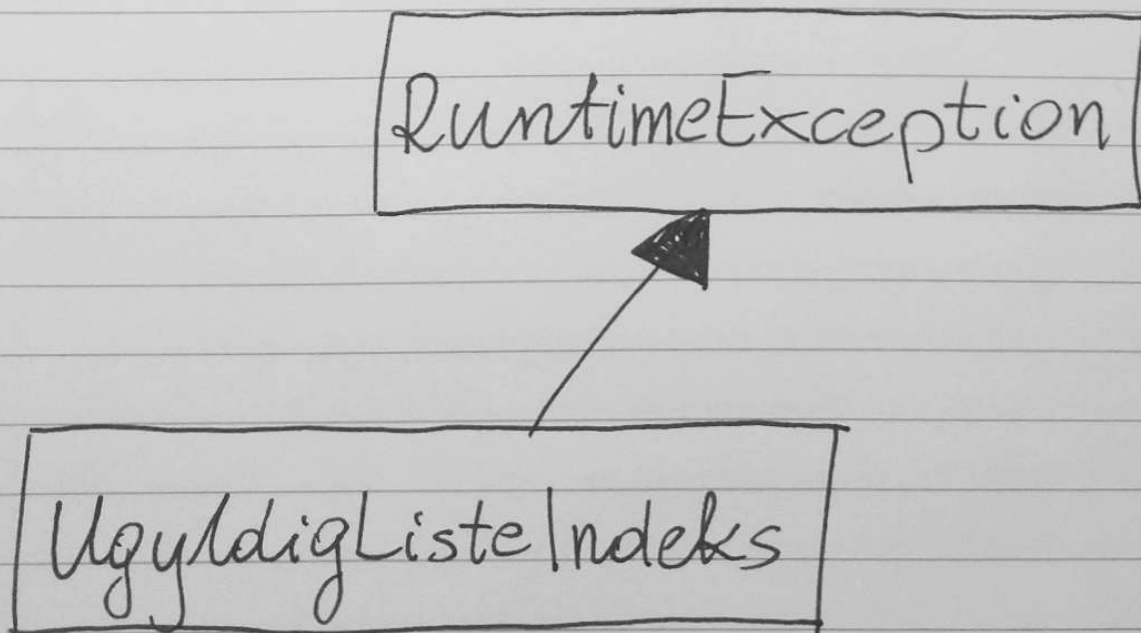 RuntimeException
UgyldigListeIndeks